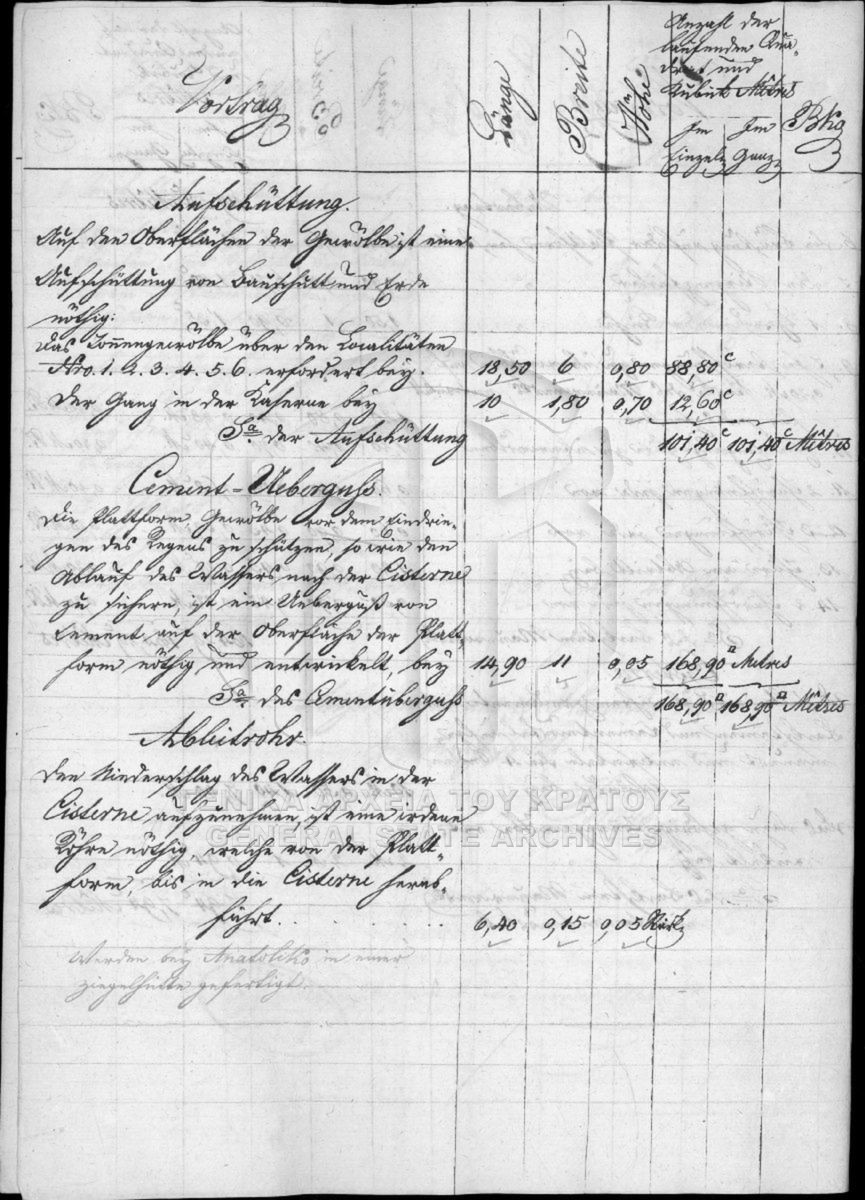 Vortrag
Länge
Breite
Höhe
Anzahl der
laufenden Qua-
drat und
Kubick Mêtres
Im Im
Einzeln Ganz
Bkg
Aufschüttung.
Auf den Oberflächen der Gewölbe ist eine
Aufschüttung von Bauschutt und Erde
nöthig:
das Tonnengewölbe über den Localitäten
Nro. 1. 2. 3. 4. 5. 6. erfordert bey. 18,50 6 0,80 88,80 c
Der Gang in der Kaserne bey 10 1,80 0,70 12,60 c
Sa. der Aufschüttung 101,40 c 101,40 c Mêtres
Cement-Ueberguß
Die Plattform, Gewölbe vor dem Eindrin-
gen des Regens zu schützen, so wie den
Ablauf des Wassers nach der Cisterne
zu sichern, ist ein Ueberguß von
Cement auf der Oberfläche der Platt-
form nöthig und entwickelt, bey 14,90 11 0,05 168,90 □ Metres
Sa. des Cementüberguß 168,90 □ 168,90 □ Mêtres
Ableitrohr
Den Niederschlag des Wassers in der
Cisterne aufzunehmen, ist eine irdene
Röhre nöthig, welche von der Platt-
form, bis in die Cisterne herab-
führt. 6,40 0,15 0,05
Werden bey Anatoliko in einer
Ziegelhütte gefertigt.
ΓΕΝΙΚΑ ΑΡΧΕΙΑ ΤΟΥ ΚΡΑΤΟΥΣ
GENERAL STATE ARCHIVES